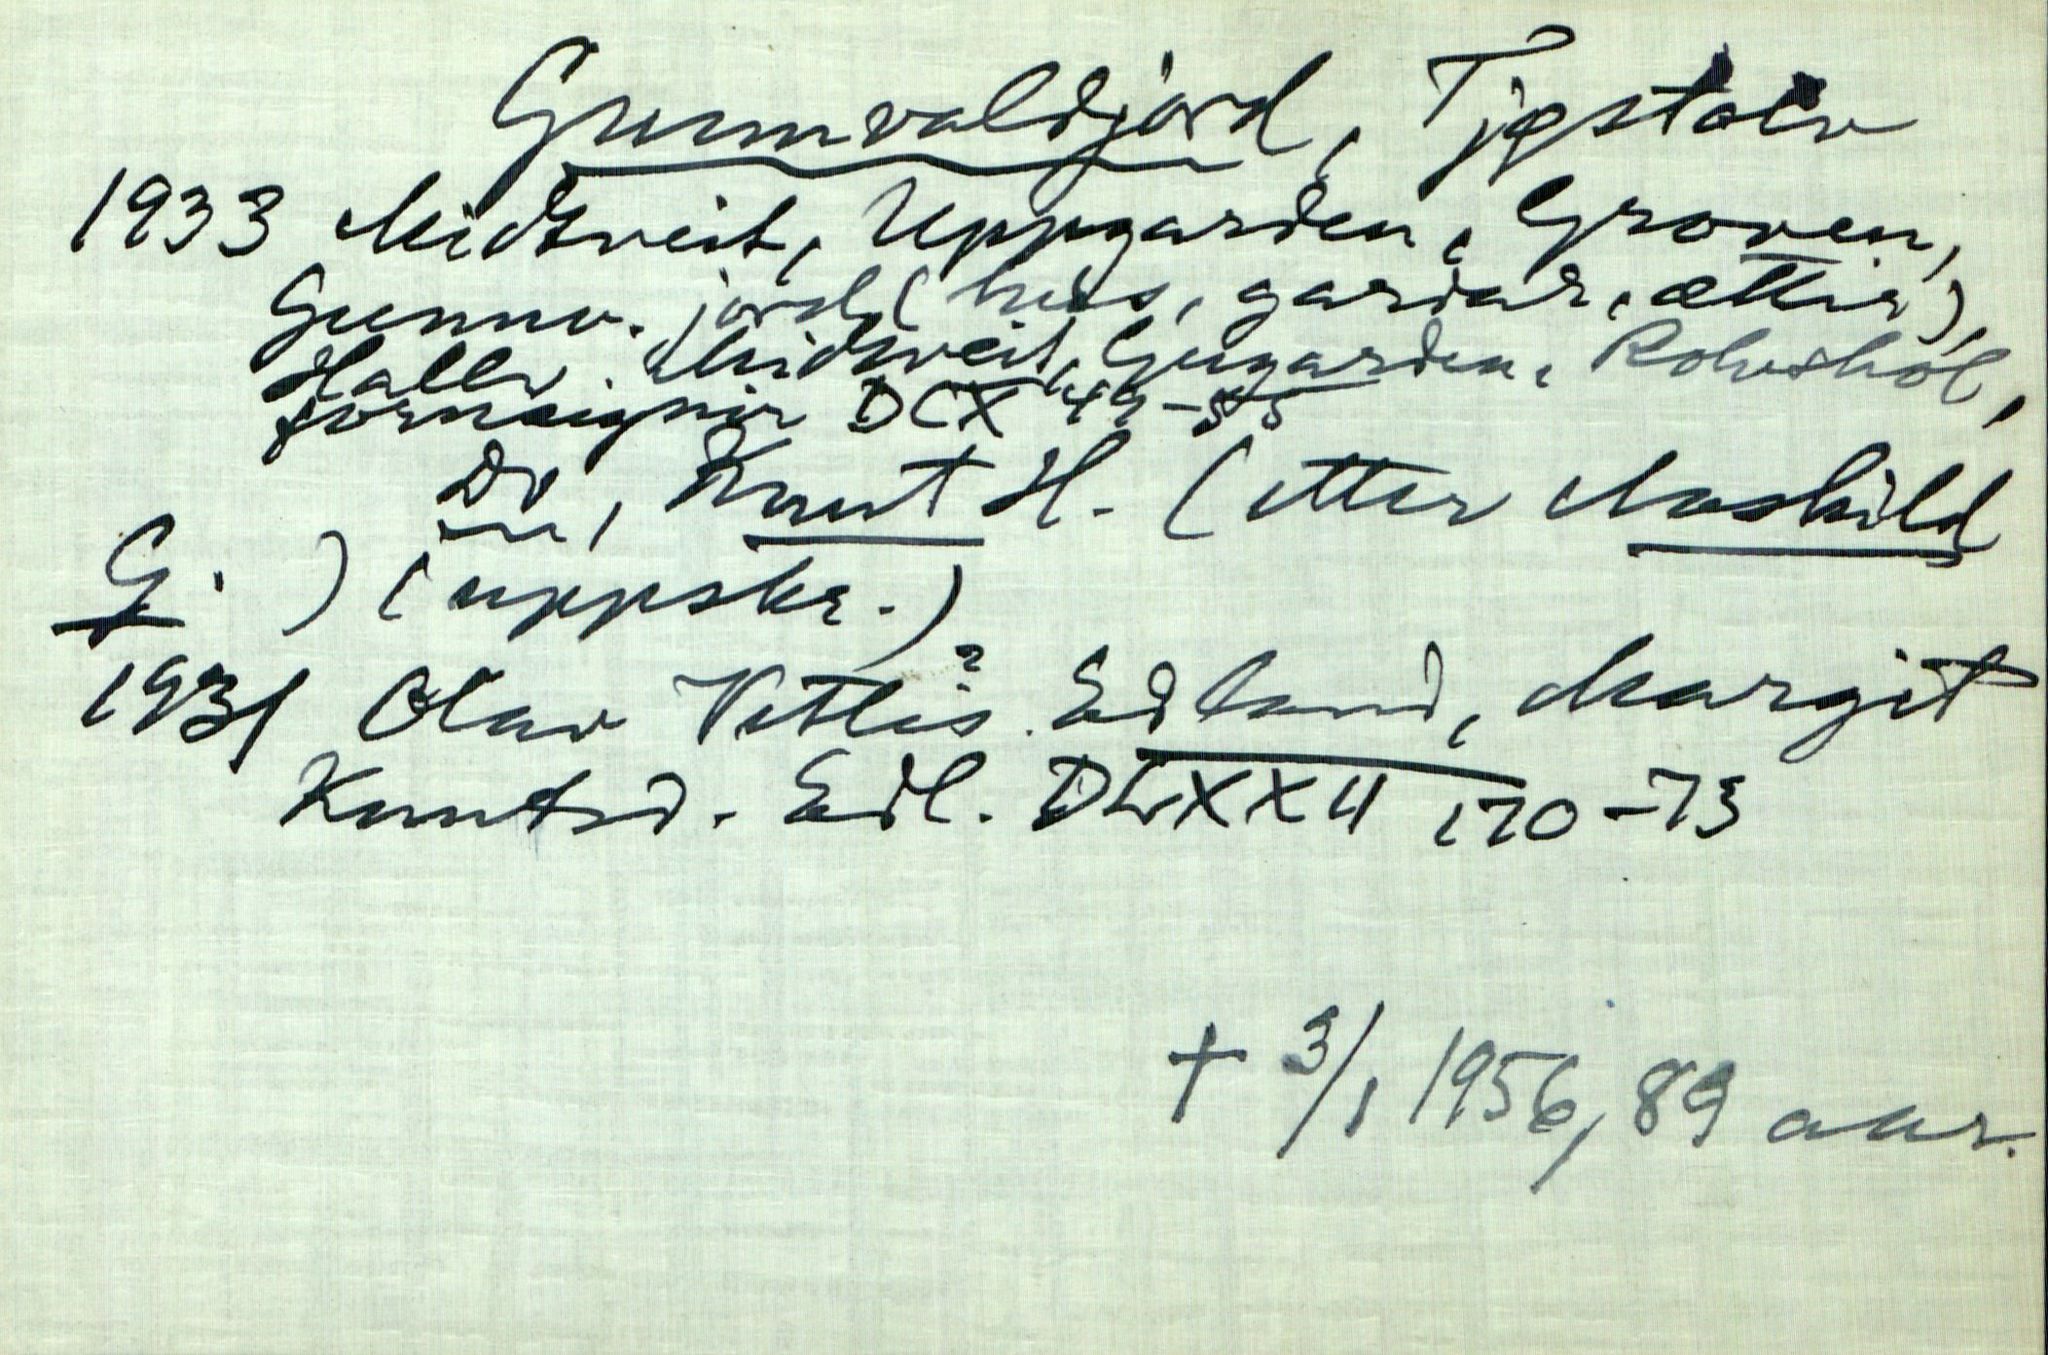 Gunnvaldjord, Tjøstolv
1933 Midtveit, Uppgarden, Groven,
Gunnv. jord (hus, gardar, ættir),
Hallv. Midtveit, Gugarden, Rolvshól,
forneignir DCX 49-55
Do, Knut H. (etter Aaskild
G.) (uppskr.)
1931 Olav Vetlis? Edland, Margit
Knutsd. Edl. DLXXII 170-73
+ 3/1 1956, 89 aar.